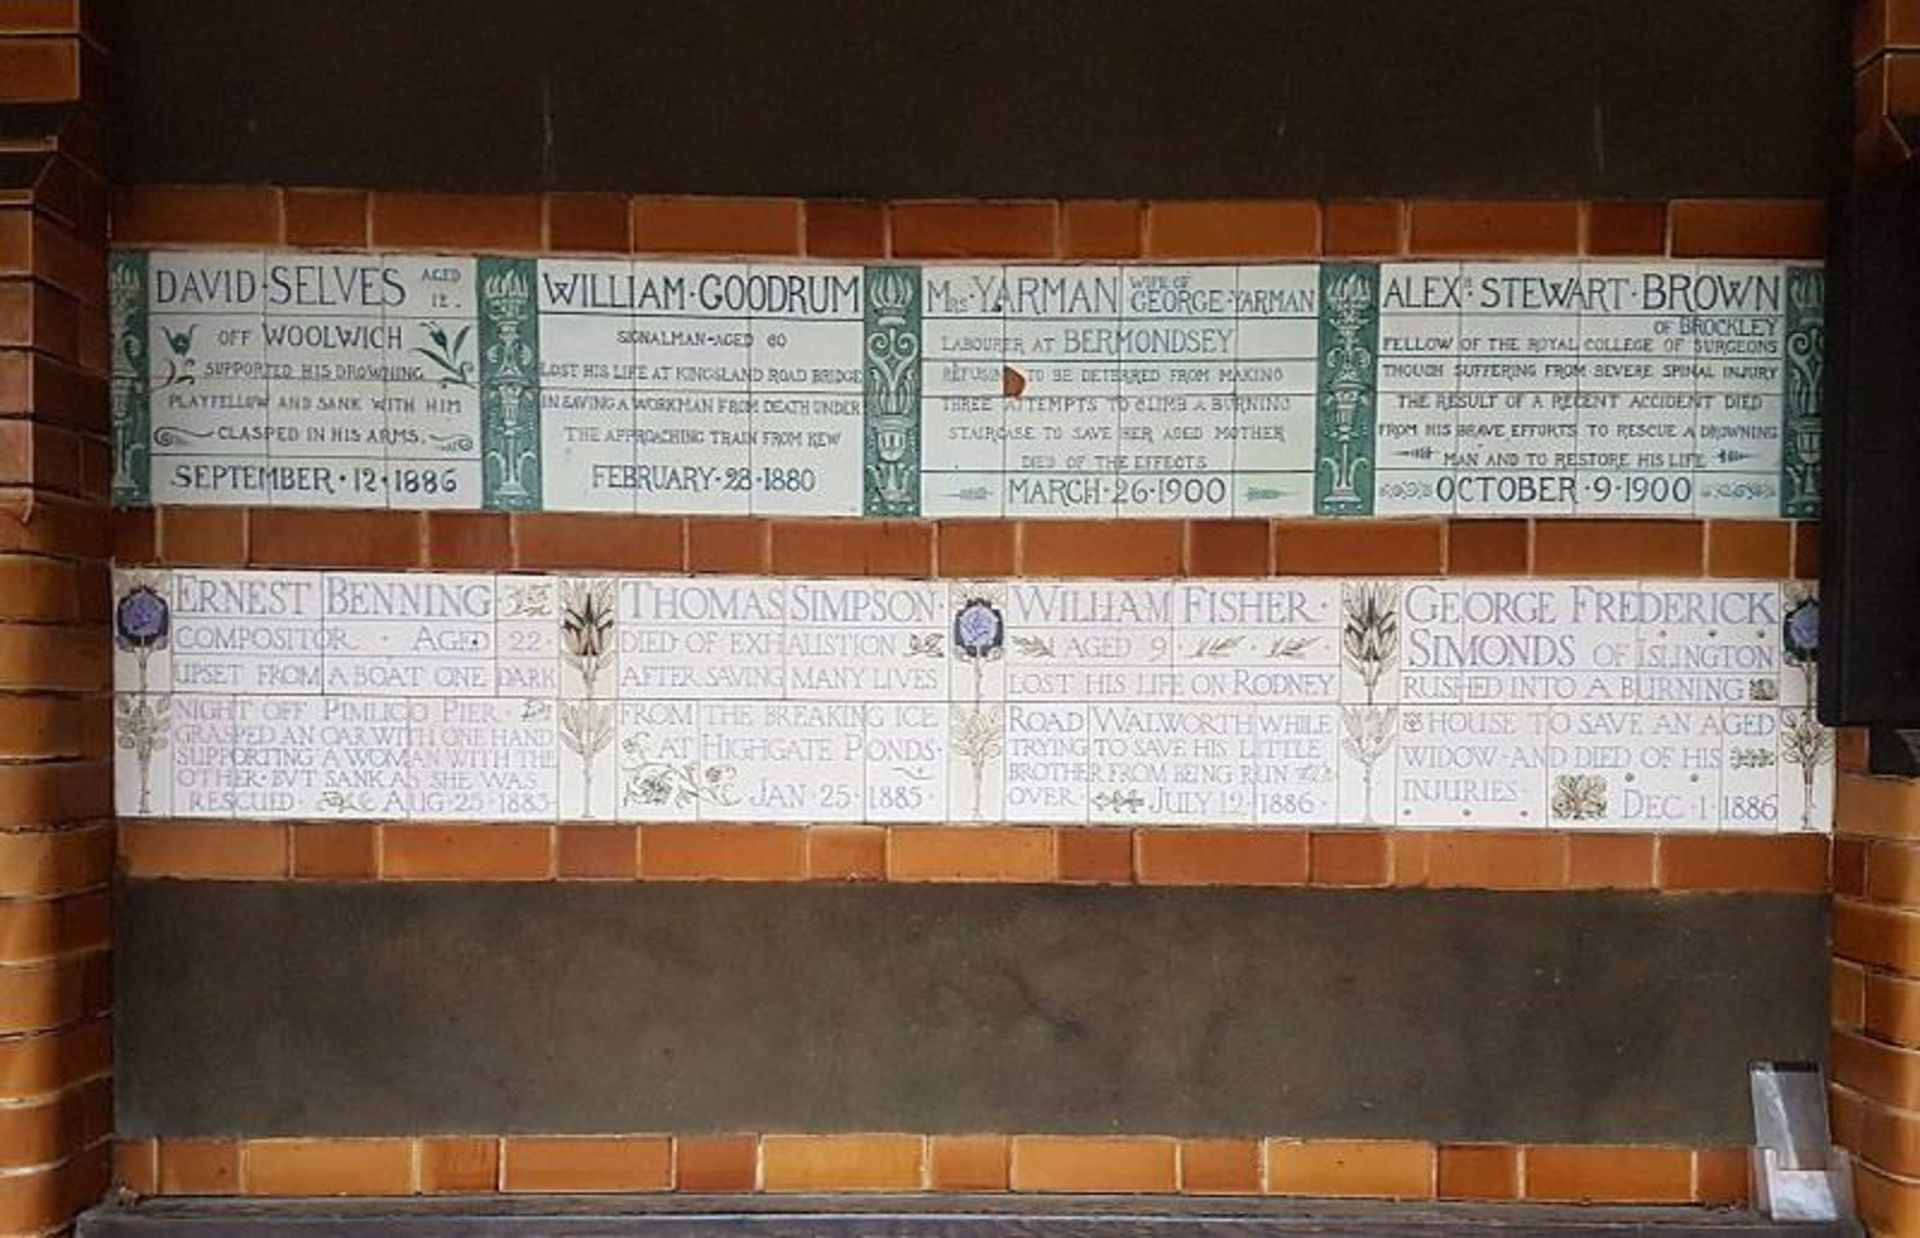 DAVID · SELVES AGED
12.
OFF WOOLWICH
SUPPORTED HIS DROWNING
PLAYFELLOW AND SANK WITH HIM
CLASPED IN HIS ARMS.
SEPTEMBER · 12 · 1886
WILLIAM · GOODRUM
SIGNALMAN - AGED 60
LOST HIS LIFE AT KINGSLAND ROAD BRIDGE
IN SAVING A WORKMAN FROM DEATH UNDER
THE APPROACHING TRAIN FROM KEW
FEBRUARY · 28 · 1880
MRS · YARMAN WIFE OF
GEORGE · YARMAN
LABOURER AT BERMONDSEY
TO BE DETERRED FROM MAKING
THREE ATTEMPTS TO CLIMB A BURNING
STAIRCASE TO SAVE HER AGED MOTHER
DIED OF THE EFFECTS
MARCH · 26 · 1900
ALEXR · STEWART · BROWN
OF BROCKLEY
FELLOW OF THE ROYAL COLLEGE OF SURGEONS
THOUGH SUFFERING FROM SEVERE SPINAL INJURY
THE RESULT OF A RECENT ACCIDENT DIED
FROM HIS BRAVE EFFORTS TO RESCUE A DROWNING
MAN AND TO RESTORE HIS LIFE
OCTOBER · 9 · 1900
ERNEST BENNING
COMPOSITOR · AGED 22
UPSET FROM A BOAT ONE DARK
NIGHT OFF PIMLICO PIER ·
GRASPED AN OAR WITH ONE HAND
SUPPORTING A WOMAN WITH THE
OTHER · BVT SANK AS SHE WAS
RESCUED · AUG · 25 · 1883
THOMAS SIMPSON ·
DIED OF EXHAUSTION
AFTER SAVING MANY LIVES
FROM THE BREAKING ICE
AT HIGHGATE PONDS ·
JAN · 25 · 1885 ·
WILLIAM FISHER ·
AGED 9 ·
LOST HIS LIFE ON RODNEY
ROAD WALWORTH WHILE
TRYING TO SAVE HIS LITTLE
BROTHER FROM BEING RUN
OVER · JULY 12 · 1886 ·
GEORGE FREDERICK
SIMONDS OF ISLINGTON
RUSHED INTO A BURNING
HOUSE TO SAVE AN AGED
WIDOW · AND DIED OF HIS
INJURIES ·
DEC · 1 · 1886